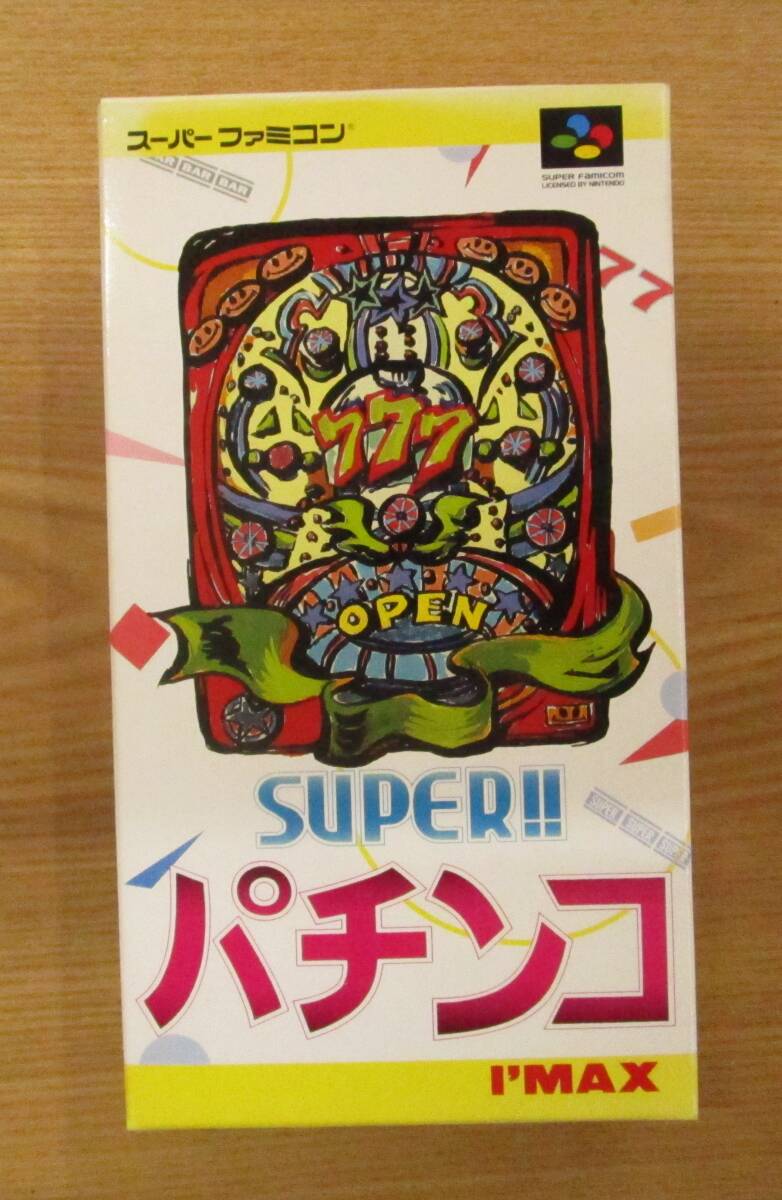 スーパーファミコン®
SUPER FAMICOM
LICENSED BY NINTENDO
BAR BAR BAR
77
777
OPEN
SUPER!!
SUPER SUPER SUPER
パチンコ
I'MAX